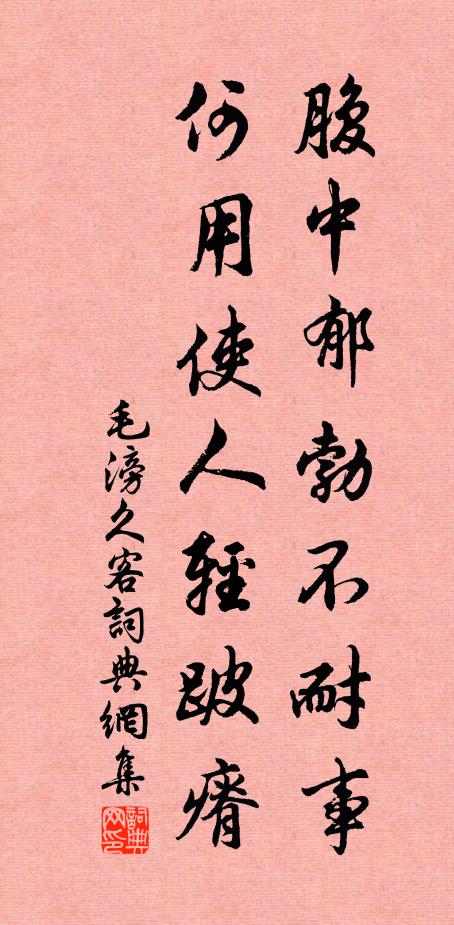 腹中郁勃不耐事
何用使人輕跛瘠
毛滂久客詞典網集
詞典網印